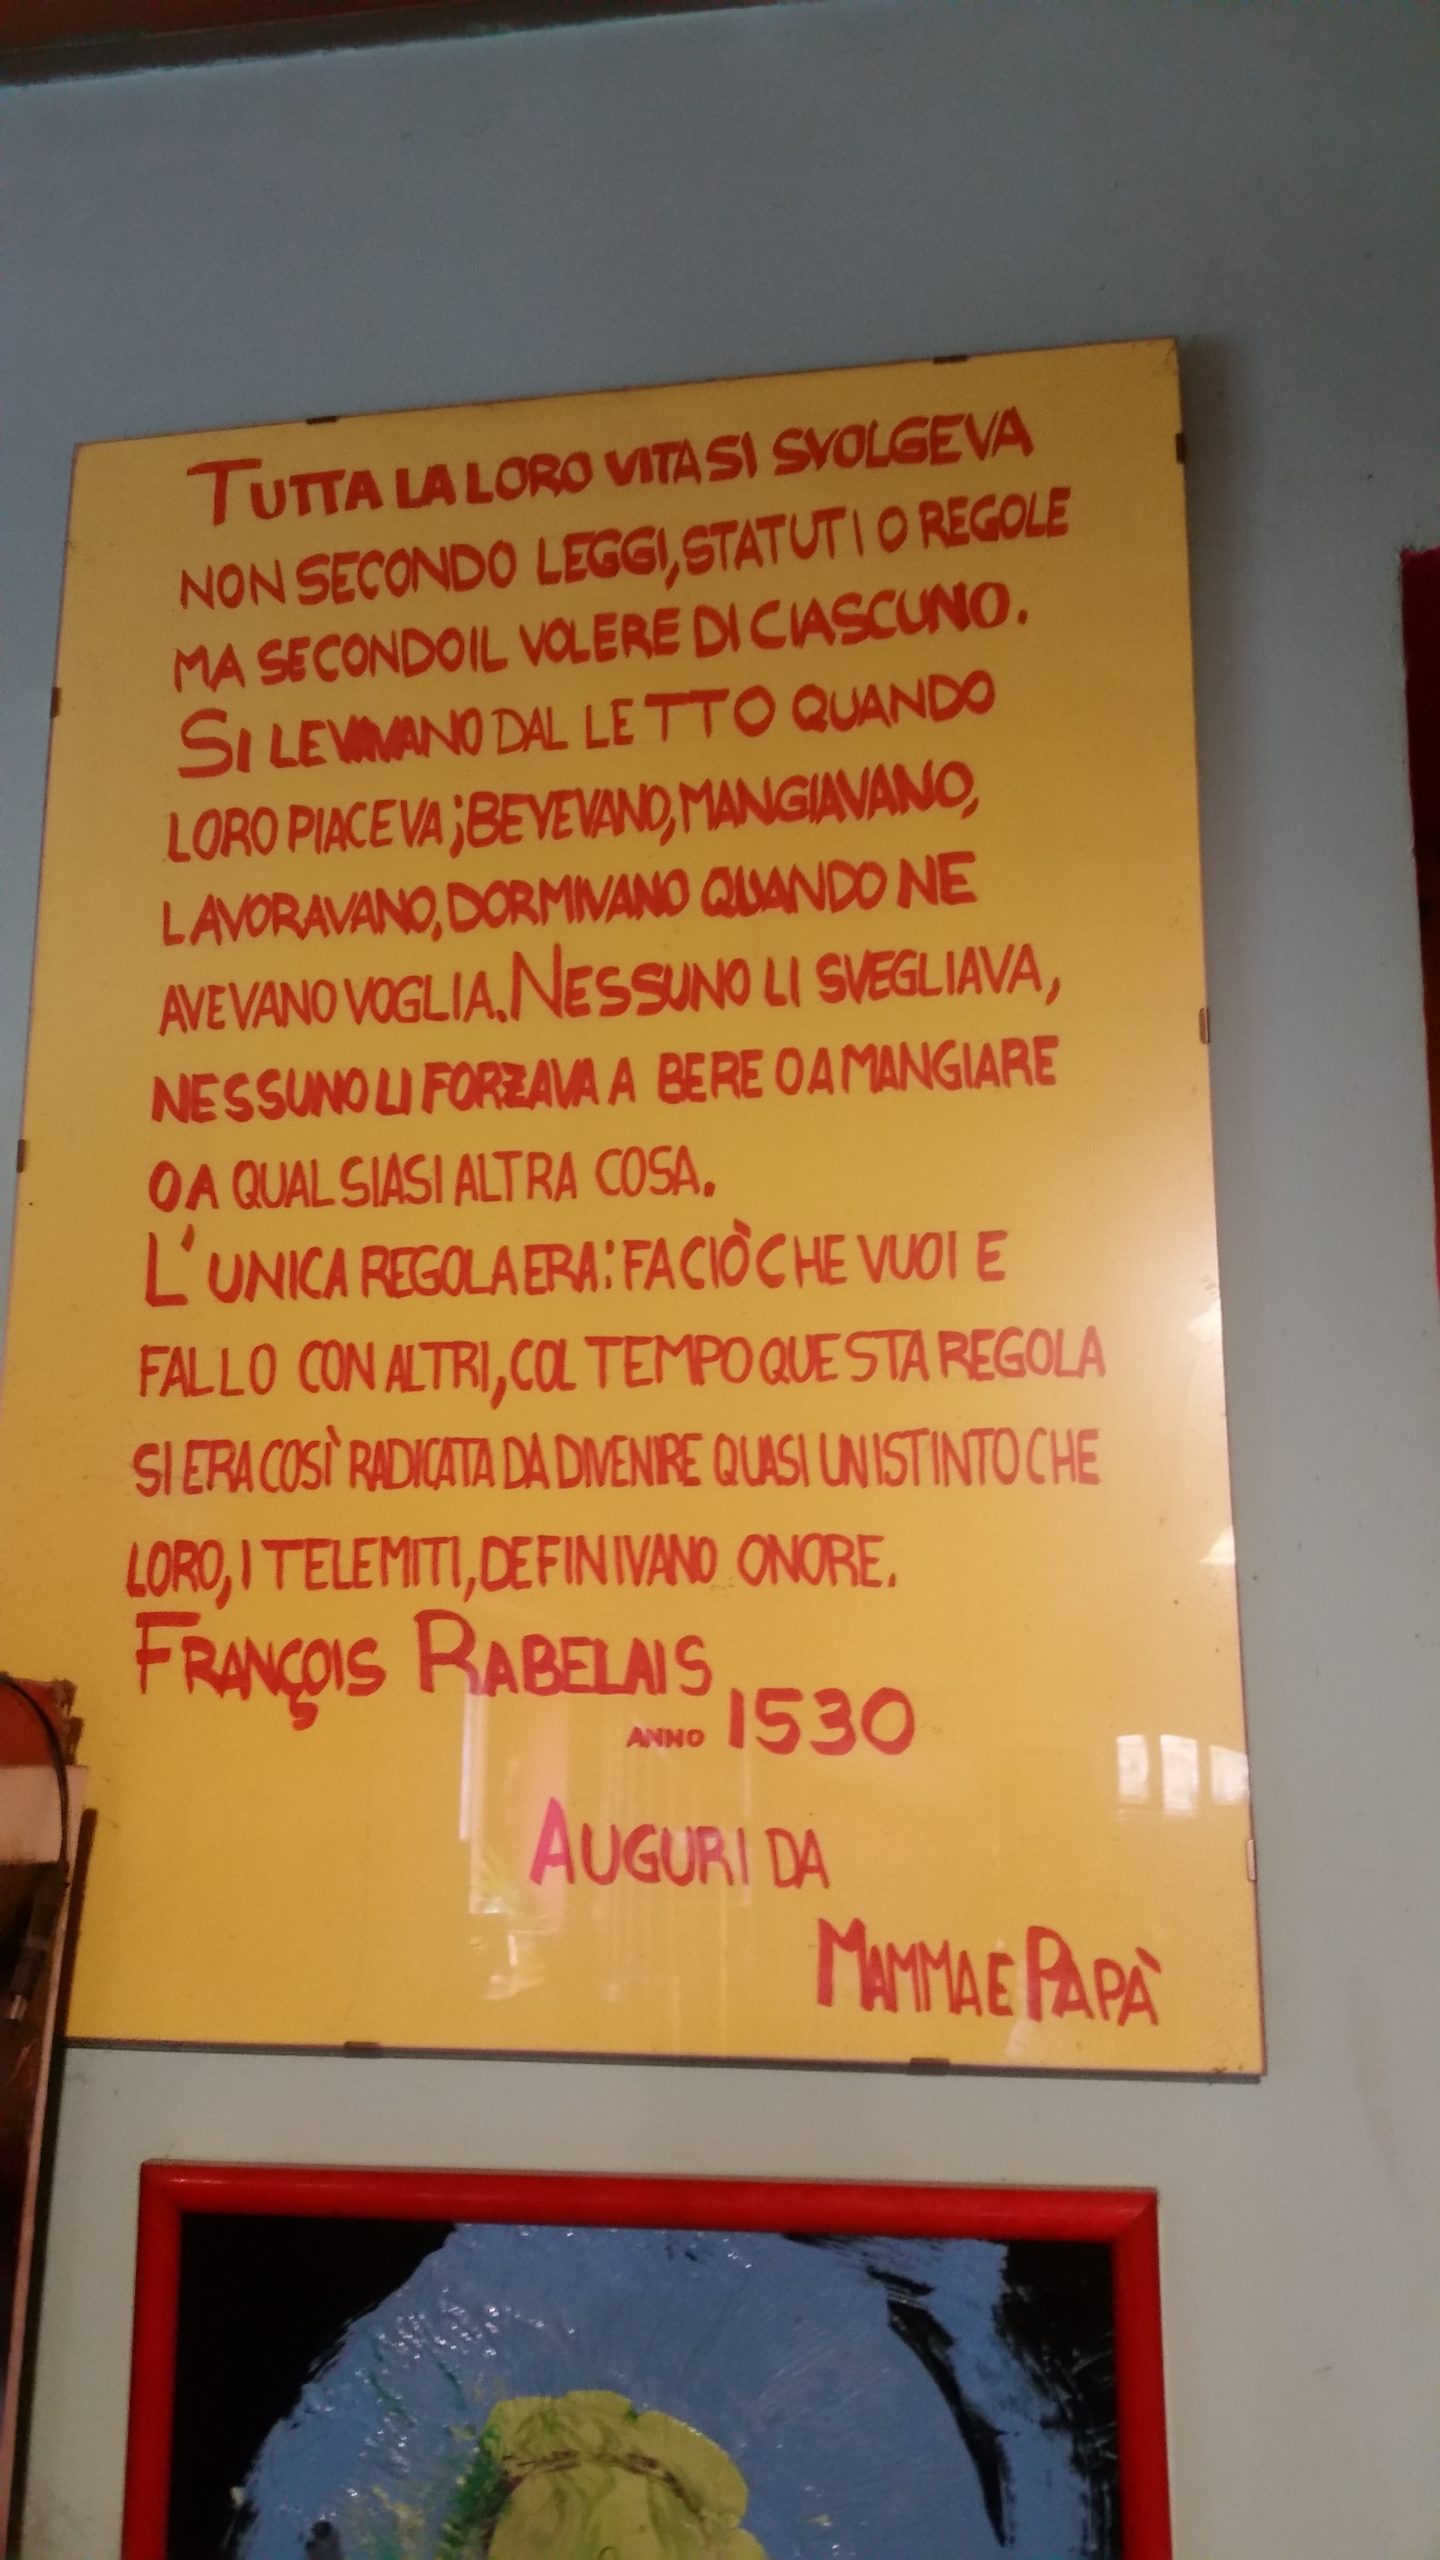 TUTTA LA LORO VITA SI SVOLGEVA
NON SECONDO LEGGI, STATUTI O REGOLE
MA SECONDO IL VOLERE DI CIASCUNO.
SI LEVAVANO DAL LETTO QUANDO
LORO PIACEVA; BEVEVANO, MANGIAVANO,
LAVORAVANO, DORMIVANO QUANDO NE
AVEVANO VOGLIA. NESSUNO LI SVEGLIAVA,
NESSUNO LI FORZAVA A BERE O A MANGIARE
O A QUALSIASI ALTRA COSA.
L'UNICA REGOLA ERA: FA CIÒ CHE VUOI E
FALLO CON ALTRI, COL TEMPO QUESTA REGOLA
SI ERA COSÌ RADICATA DA DIVENIRE QUASI UN ISTINTO CHE
LORO, I TELEMITI, DEFINIVANO ONORE.
FRANÇOIS RABELAIS
ANNO 1530
AUGURI DA
MAMMA E PAPÀ